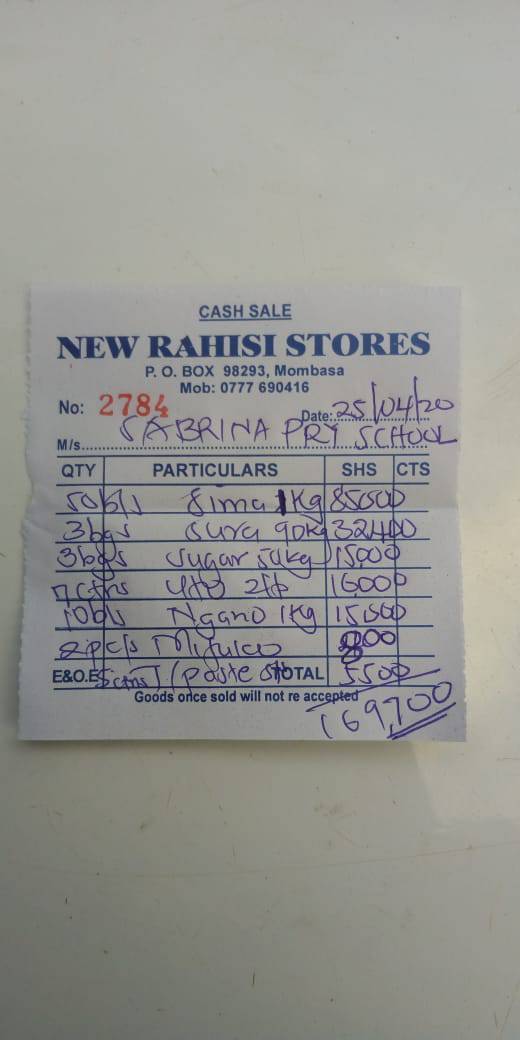 CASH SALE
NEW RAHISI STORES
P. O. BOX 98293, Mombasa
Mob: 0777 690416
No: 2784 Date: 25/04/20
M/s. SABRINA PRY SCHOOL
QTY PARTICULARS SHS CTS
50bls Sima 1Kg 85000
3bgs Sura 90kg 32400
3bgs Sugar 50kg 15,000
7ctns 16,000
10bls Ngano 1Kg 15,000
2pcs Mifuko 800
E&O.E 5ctns T/paste TOTAL 5500
Goods once sold will not re accepted
169,700